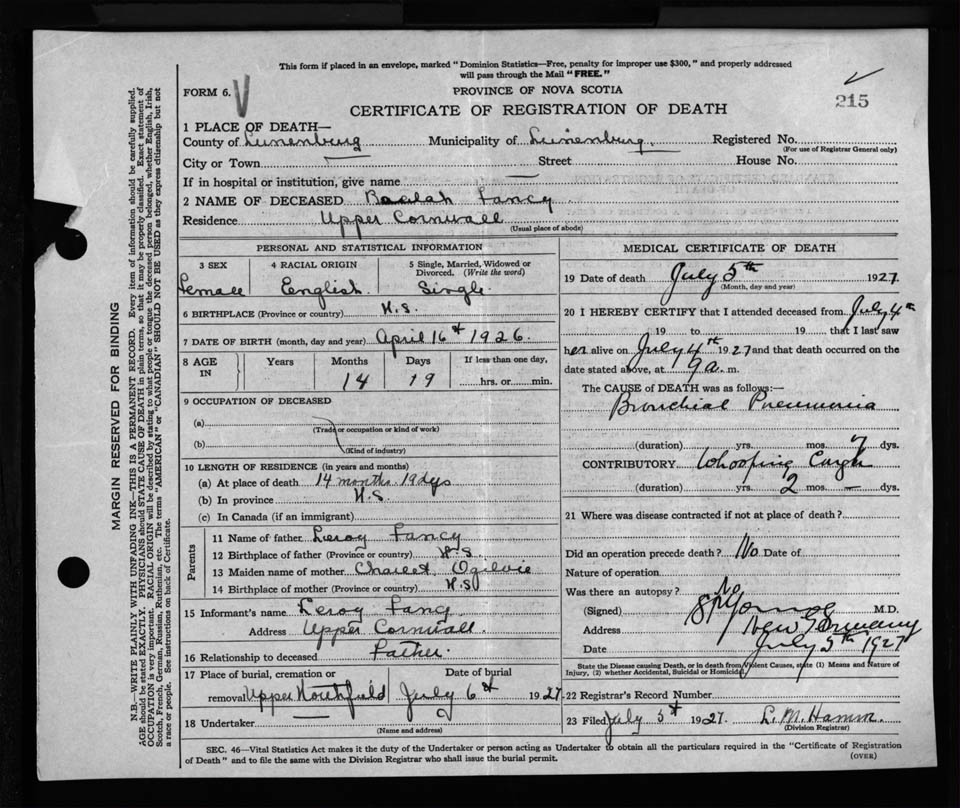 This form if placed in an envelope, marked " Dominion Statistics—Free, penalty for improper use $300," and properly addressed
will pass through the Mail "FREE."
FORM 6. V
PROVINCE OF NOVA SCOTIA
215
CERTIFICATE OF REGISTRATION OF DEATH
1 PLACE OF DEATH—
County of Lunenburg Municipality of Lunenburg Registered No.
(For use of Registrar General only)
City or Town Street House No.
If in hospital or institution, give name
2 NAME OF DECEASED Fancy
Residence Upper Cornwall
(Usual place of abode)
PERSONAL AND STATISTICAL INFORMATION
3 SEX 4 RACIAL ORIGIN 5 Single, Married, Widowed or
Divorced. (Write the word)
Female English. Single.
6 BIRTHPLACE (Province or country) N.S.
7 DATE OF BIRTH (month, day and year) April 16th 1926.
8 AGE IN Years Months Days If less than one day,
14 19 hrs. or min.
9 OCCUPATION OF DECEASED
(a)
(Trade or occupation or kind of work)
(b)
(Kind of industry)
10 LENGTH OF RESIDENCE (in years and months)
(a) At place of death 14 months. 19 dys
(b) In province N.S.
(c) In Canada (if an immigrant)
Parents
11 Name of father Leroy Fancy
12 Birthplace of father (Province or country) N.S.
13 Maiden name of mother Ogilvie
14 Birthplace of mother (Province or country) N.S
15 Informant's name Leroy Fancy
Address Upper Cornwall.
16 Relationship to deceased Father.
17 Place of burial, cremation or Date of burial
removal Upper Northfield July 6th 1927.
18 Undertaker
(Name and address)
MEDICAL CERTIFICATE OF DEATH
19 Date of death July 5th 1927.
(Month, day and year)
20 I HEREBY CERTIFY that I attended deceased from July 4th
19 to 19 that I last saw
her alive on July 4th 1927 and that death occurred on the
date stated above, at 9 a. m.
The CAUSE of DEATH was as follows:—
Bronchial Pneumonia
(duration) yrs. mos. 7 dys.
CONTRIBUTORY Whooping Cough
(duration) yrs. 2 mos. — dys.
21 Where was disease contracted if not at place of death?
Did an operation precede death? No Date of
Nature of operation
Was there an autopsy? No
(Signed) M.D.
Address New Germany
Date July 5th 1927
State the Disease causing Death, or in death from Violent Causes, state (1) Means and Nature of
Injury, (2) whether Accidental, Suicidal or Homicidal
22 Registrar's Record Number
23 Filed July 5th 1927. L. M. Hamm.
(Division Registrar)
SEC. 46—Vital Statistics Act makes it the duty of the Undertaker or person acting as Undertaker to obtain all the particulars required in the "Certificate of Registration
of Death" and to file the same with the Division Registrar who shall issue the burial permit.
(OVER)
MARGIN RESERVED FOR BINDING
N.B.—WRITE PLAINLY WITH UNFADING INK—THIS IS A PERMANENT RECORD. Every item of information should be carefully supplied.
AGE should be stated EXACTLY. PHYSICIANS should STATE CAUSE OF DEATH in plain terms, so that it may be properly classified. Exact statement of
OCCUPATION is very important. RACIAL ORIGIN will be described by stating to what people or tongue the deceased person belonged, whether English, Irish,
Scotch, French, German, Russian, Ruthenian, etc. The terms "AMERICAN" or "CANADIAN" SHOULD NOT BE USED as they express citizenship but not
a race or people. See instructions on back of Certificate.